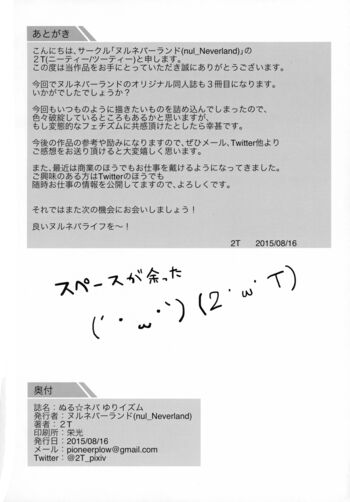 あとがき
こんにちは、サークル「ヌルネバーランド(nul_Neverland)」の
２T(ニーティー/ツーティー)と申します。
この度は当作品をお手にとっていただき誠にありがとうございます。
今回でヌルネバーランドのオリジナル同人誌も３冊目になります。
いかがでしたでしょうか？
今回もいつものように描きたいものを詰め込んでしまったので、
色々破綻しているところもあるかと思いますが、
もし変態的なフェチズムに共感頂けたとしたら幸甚です。
今後の作品の参考や励みになりますので、ぜひメール、Twitter他より
ご感想をお送り頂けると大変嬉しく思います。
また、最近は商業のほうでもお仕事を戴けるようになってきました。
ご興味のある方はTwitterのほうでも
随時お仕事の情報を公開してますので、よろしくです。
それではまた次の機会にお会いしましょう！
良いヌルネバライフを〜！
2T 2015/08/16
スペースが余った
(´・ω・`) (2・ω・T)
奥付
誌名：ぬる☆ネバ ゆりイズム
発行者：ヌルネバーランド(nul_Neverland)
著者：２T
印刷所：栄光
発行日：2015/08/16
メール：pioneerplow@gmail.com
Twitter：@2T_pixiv